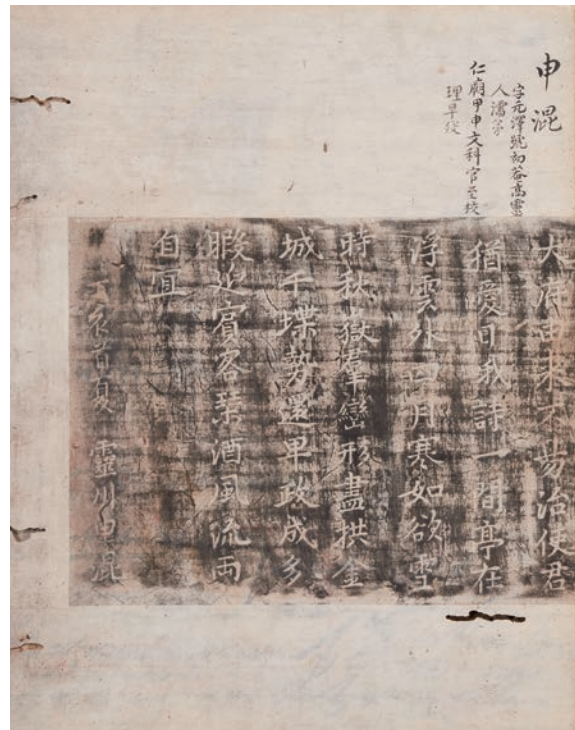 申混
字元澤號初菴高靈
人濡弟
仁廟甲申文科官至校
理早歿
大府由来不易治使君
猶愛日哦詩一間亭在
浮雲外六月寒如欲雪
時秋嶽羣巒形盡拱金
城千堞勢還卑政成多
暇迎賓客琴酒風流兩
自宜
丁亥首夏 靈川申混